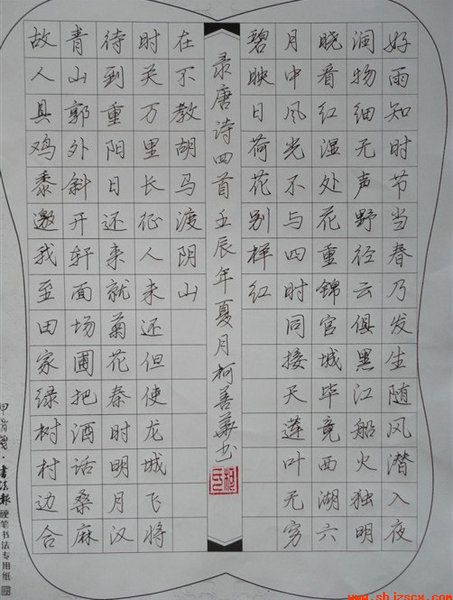 好雨知时节当春乃发生随风潜入夜
润物细无声野径云俱黑江船火独明
晓看红湿处花重锦官城毕竟西湖六
月中风光不与四时同接天莲叶无穷
碧映日荷花别样红
故人具鸡黍邀我至田家绿树村边合
青山郭外斜开轩面场圃把酒话桑麻
待到重阳日还来就菊花秦时明月汉
时关万里长征人未还但使龙城飞将
在不教胡马渡阴山
录唐诗四首壬辰年夏月柯善书
书法报硬笔书法专用纸
www.shjzscx.com